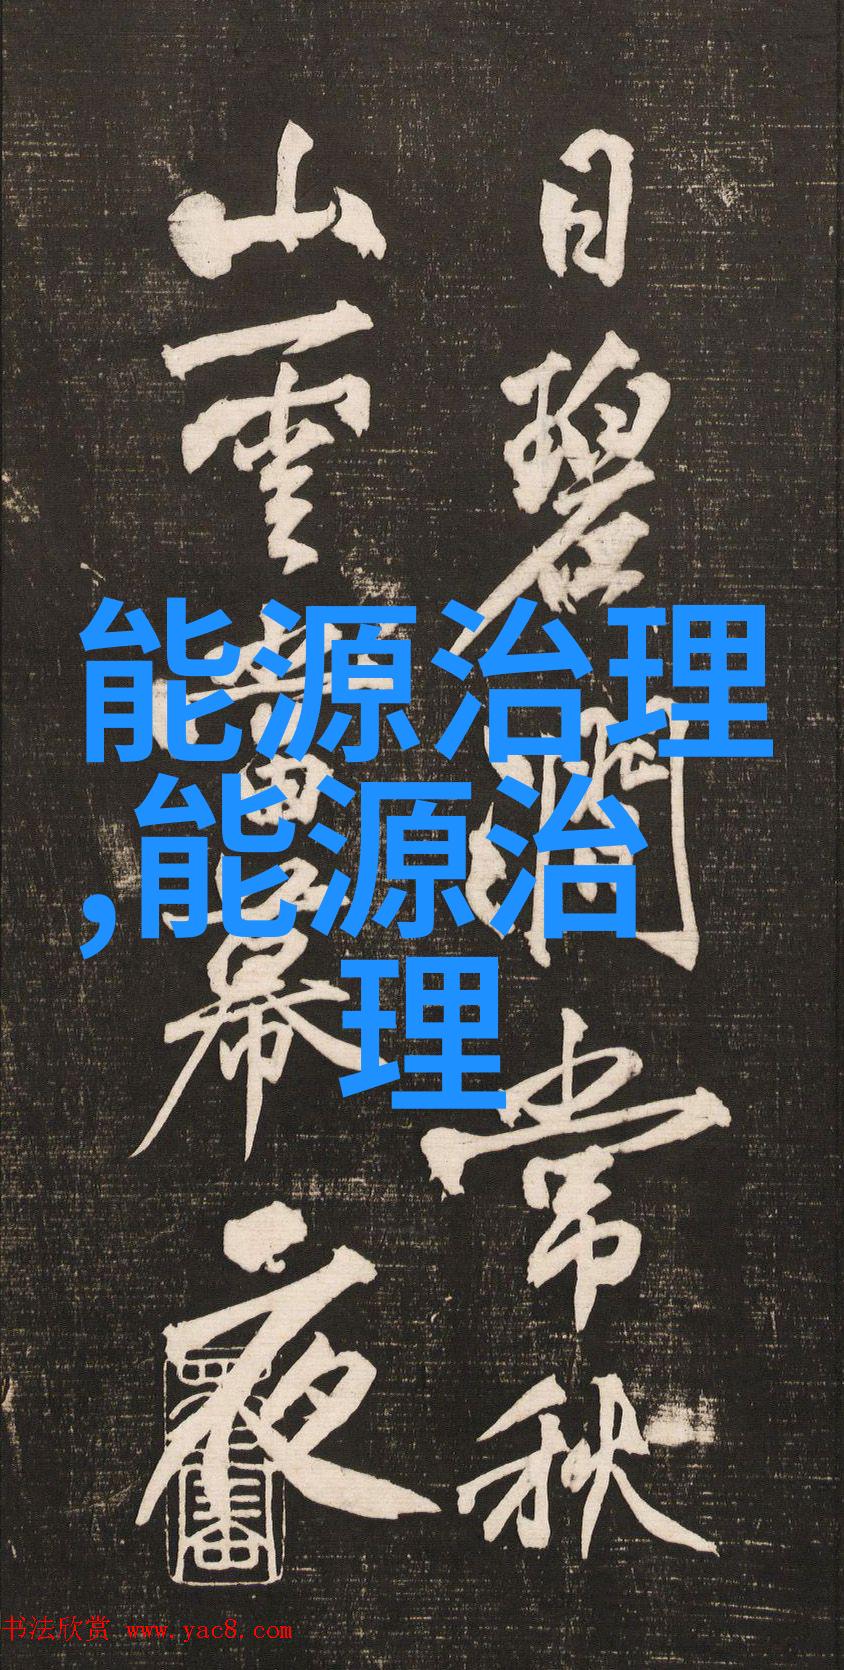 日碧澗常秋
山雲當幕夜
能源治理
,能源治
理
书法欣赏 www.yac8.com